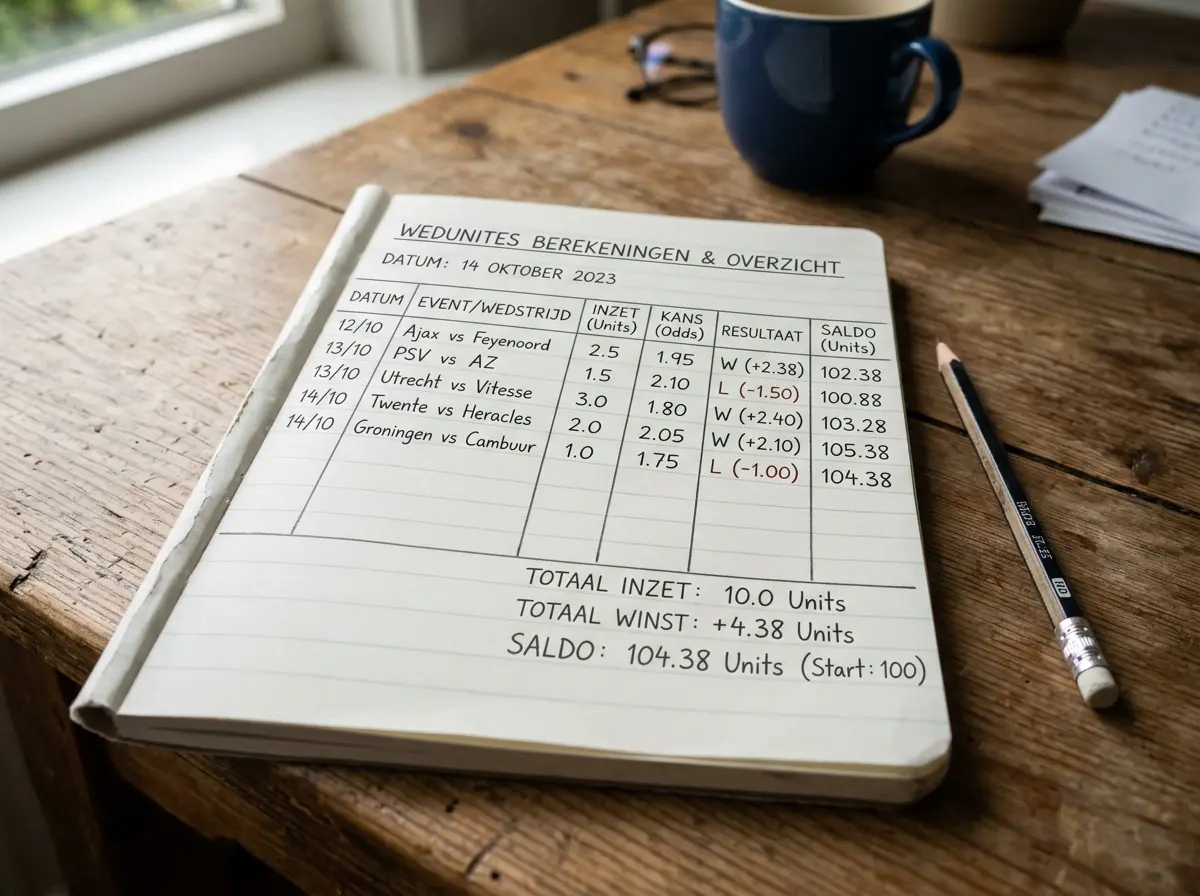 WEDUNITES BEREKENINGEN & OVERZICHT
DATUM: 14 OKTOBER 2023
DATUM EVENT/WEDSTRIJD INZET (Units) KANS (Odds) RESULTAAT SALDO (Units)
12/10 Ajax vs Feyenoord 2.5 1.95 W (+2.38) 102.38
13/10 PSV vs AZ 1.5 2.10 L (-1.50) 100.88
13/10 Utrecht vs Vitesse 3.0 1.80 W (+2.40) 103.28
14/10 Twente vs Heracles 2.0 2.05 W (+2.10) 105.38
14/10 Groningen vs Cambuur 1.0 1.75 L (-1.00) 104.38
TOTAAL INZET: 10.0 Units
TOTAAL WINST: +4.38 Units
SALDO: 104.38 Units (Start: 100)